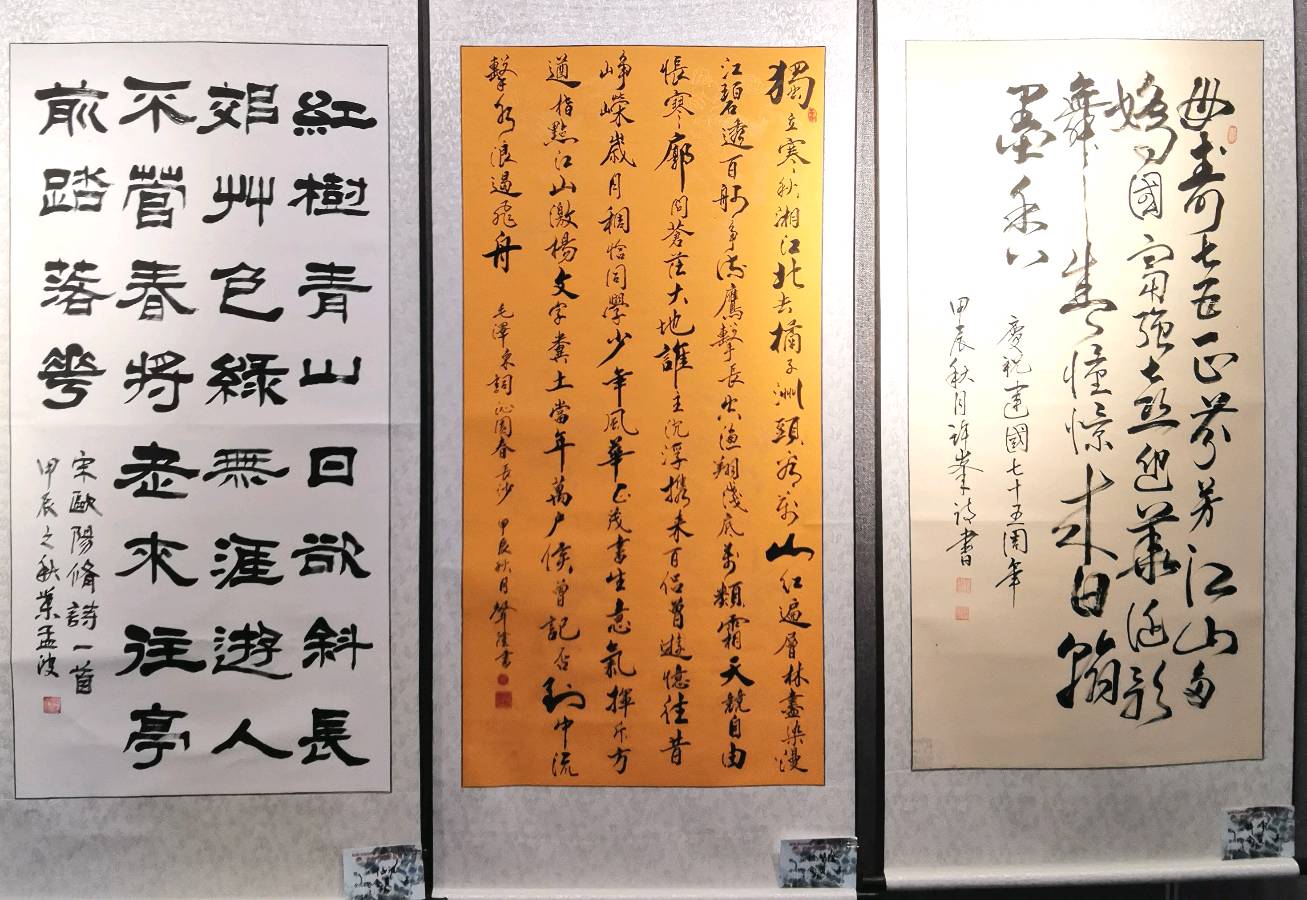 紅樹青山日欲斜長
郊艸色綠無涯遊人
不管春將老來往亭
前踏落花
宋歐陽脩詩一首
甲辰之秋葉孟波
獨立寒秋湘江北去橘子洲頭看万山紅遍層林盡染漫
江碧透百舸爭流鷹擊長空漁翔淺底万類霜天競自由
悵寥廓問蒼茫大地誰主沉浮攜来百侶曾遊憶往昔
崢嶸歲月稠恰同學少年風華正茂書生意氣揮斥方
遒指點江山激揚文字糞土當年萬户侯曾記否到中流
擊水浪遏飛舟
毛澤東詞沁園春長沙 甲辰秋月書
母壽七五正芬芳江山多
嬌國富強華誕歌
舞生憧憬来日翰
墨香
慶祝建國七十五周年
甲辰秋月許峯詩書